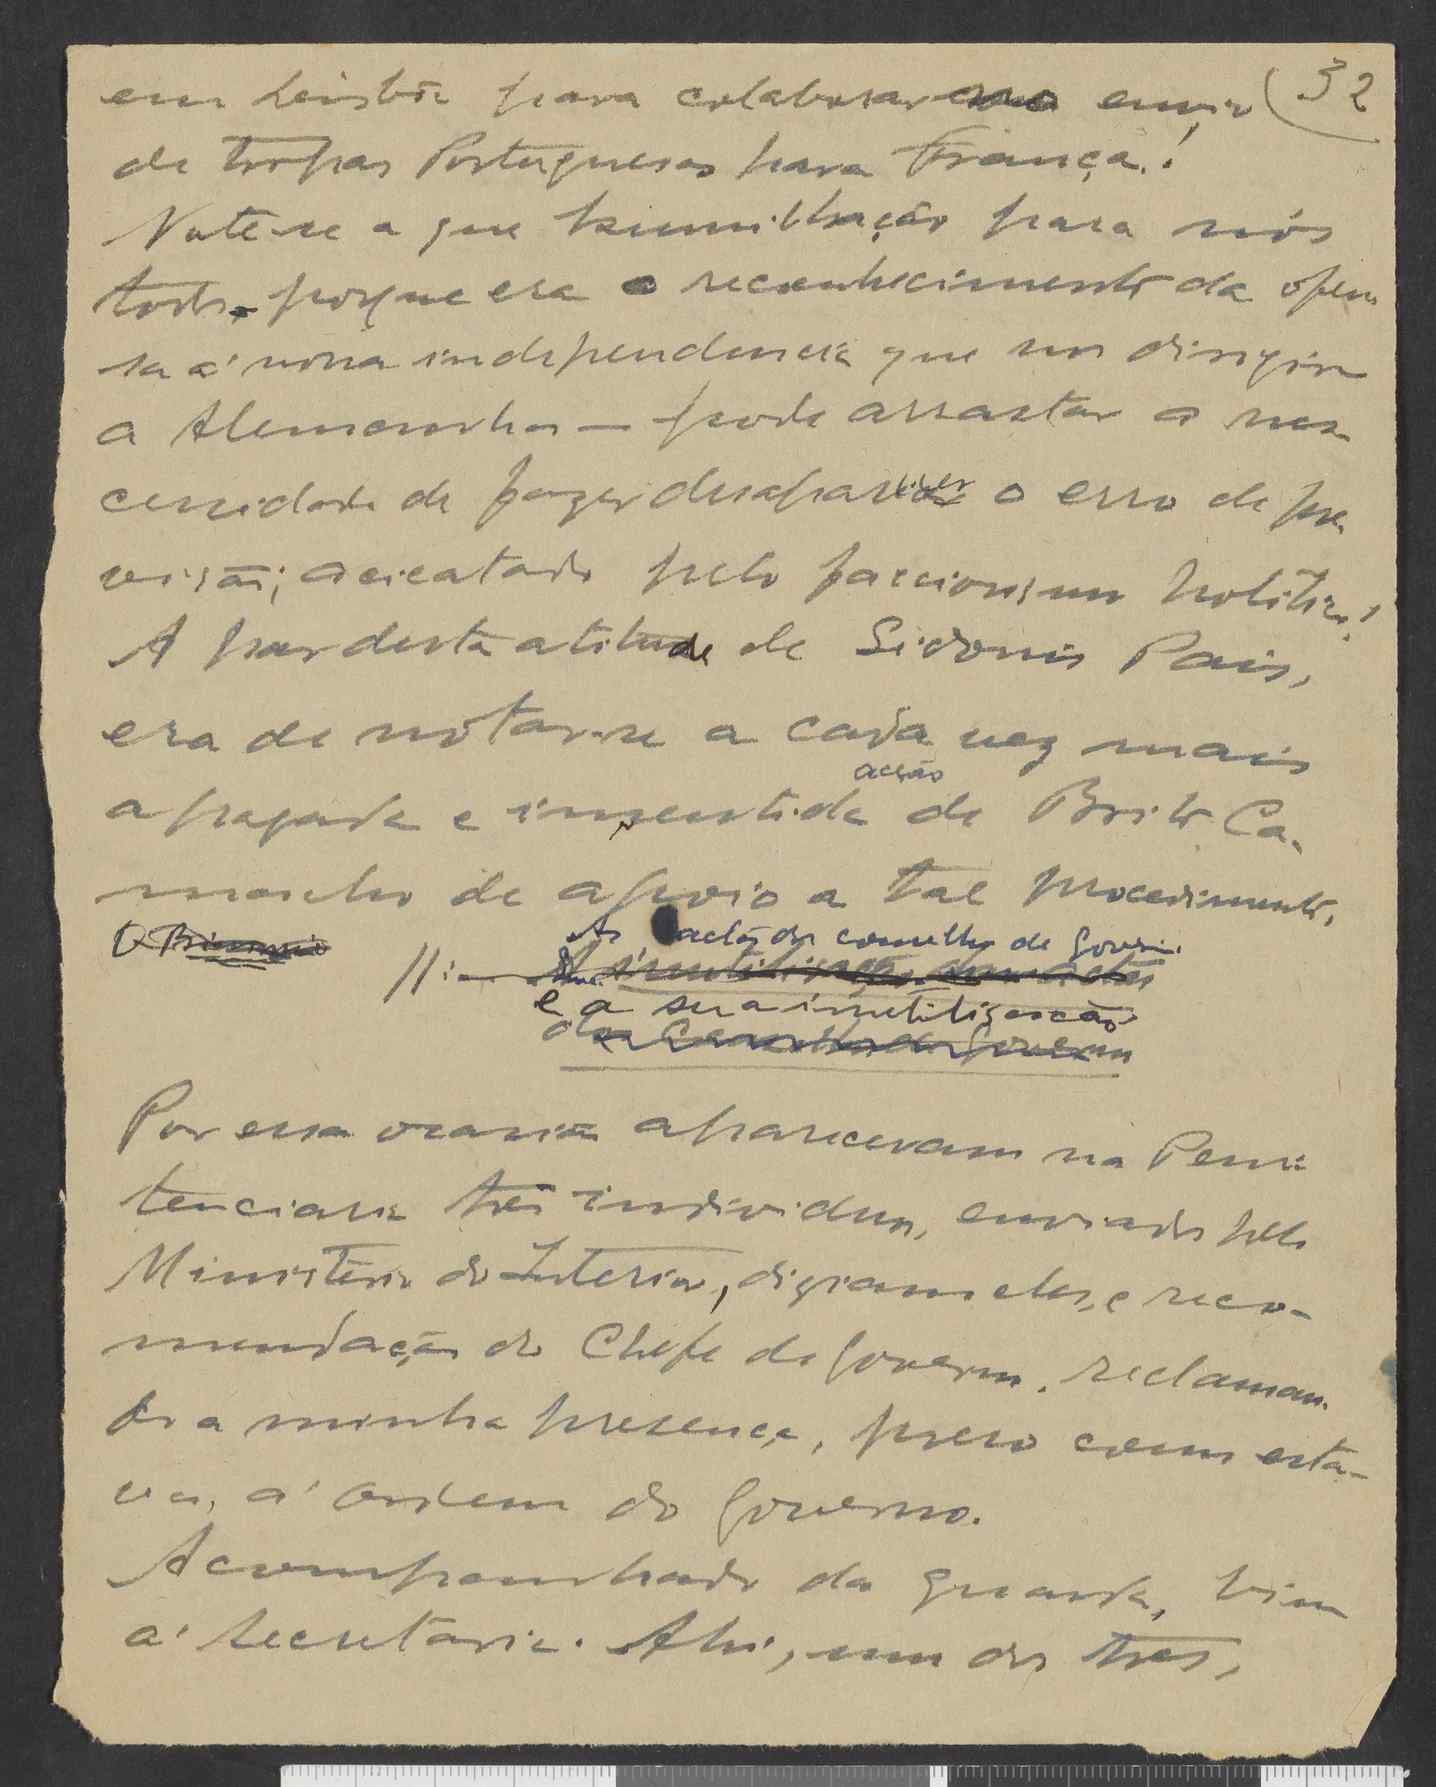 32
em Lisbôa para colaborar no envio
de tropas Portuguesas para França!
Note-se a que humilhação para nós
todos, porque era o reconhecimento da ofen
sa á nossa independencia que nos dirigira
a Alemanha — pode arrastar a nes-
cessidade de fazer desaparecer o erro de pre-
visão; acicatado pelo faccionismo politico!
A par desta atitude de Sidonio Pais,
era de notar-se a cada vez mais
acção
apagada e inventida de Brito Ca-
macho de apoio a tal procedimento.
As actas do conselho de Governo
11:—
e a sua inutilisação
Por essa ocasião apareceram na Peni
tenciaria três individuos, enviados pelo
Ministério do Interior, diziam eles, e reco-
mendação do Chefe do Governo, reclaman-
do a minha presença, preso como esta-
va, á ordem do Governo.
Acompanhado da guarda, vim
á secretaria. Ahi, um dos tres,